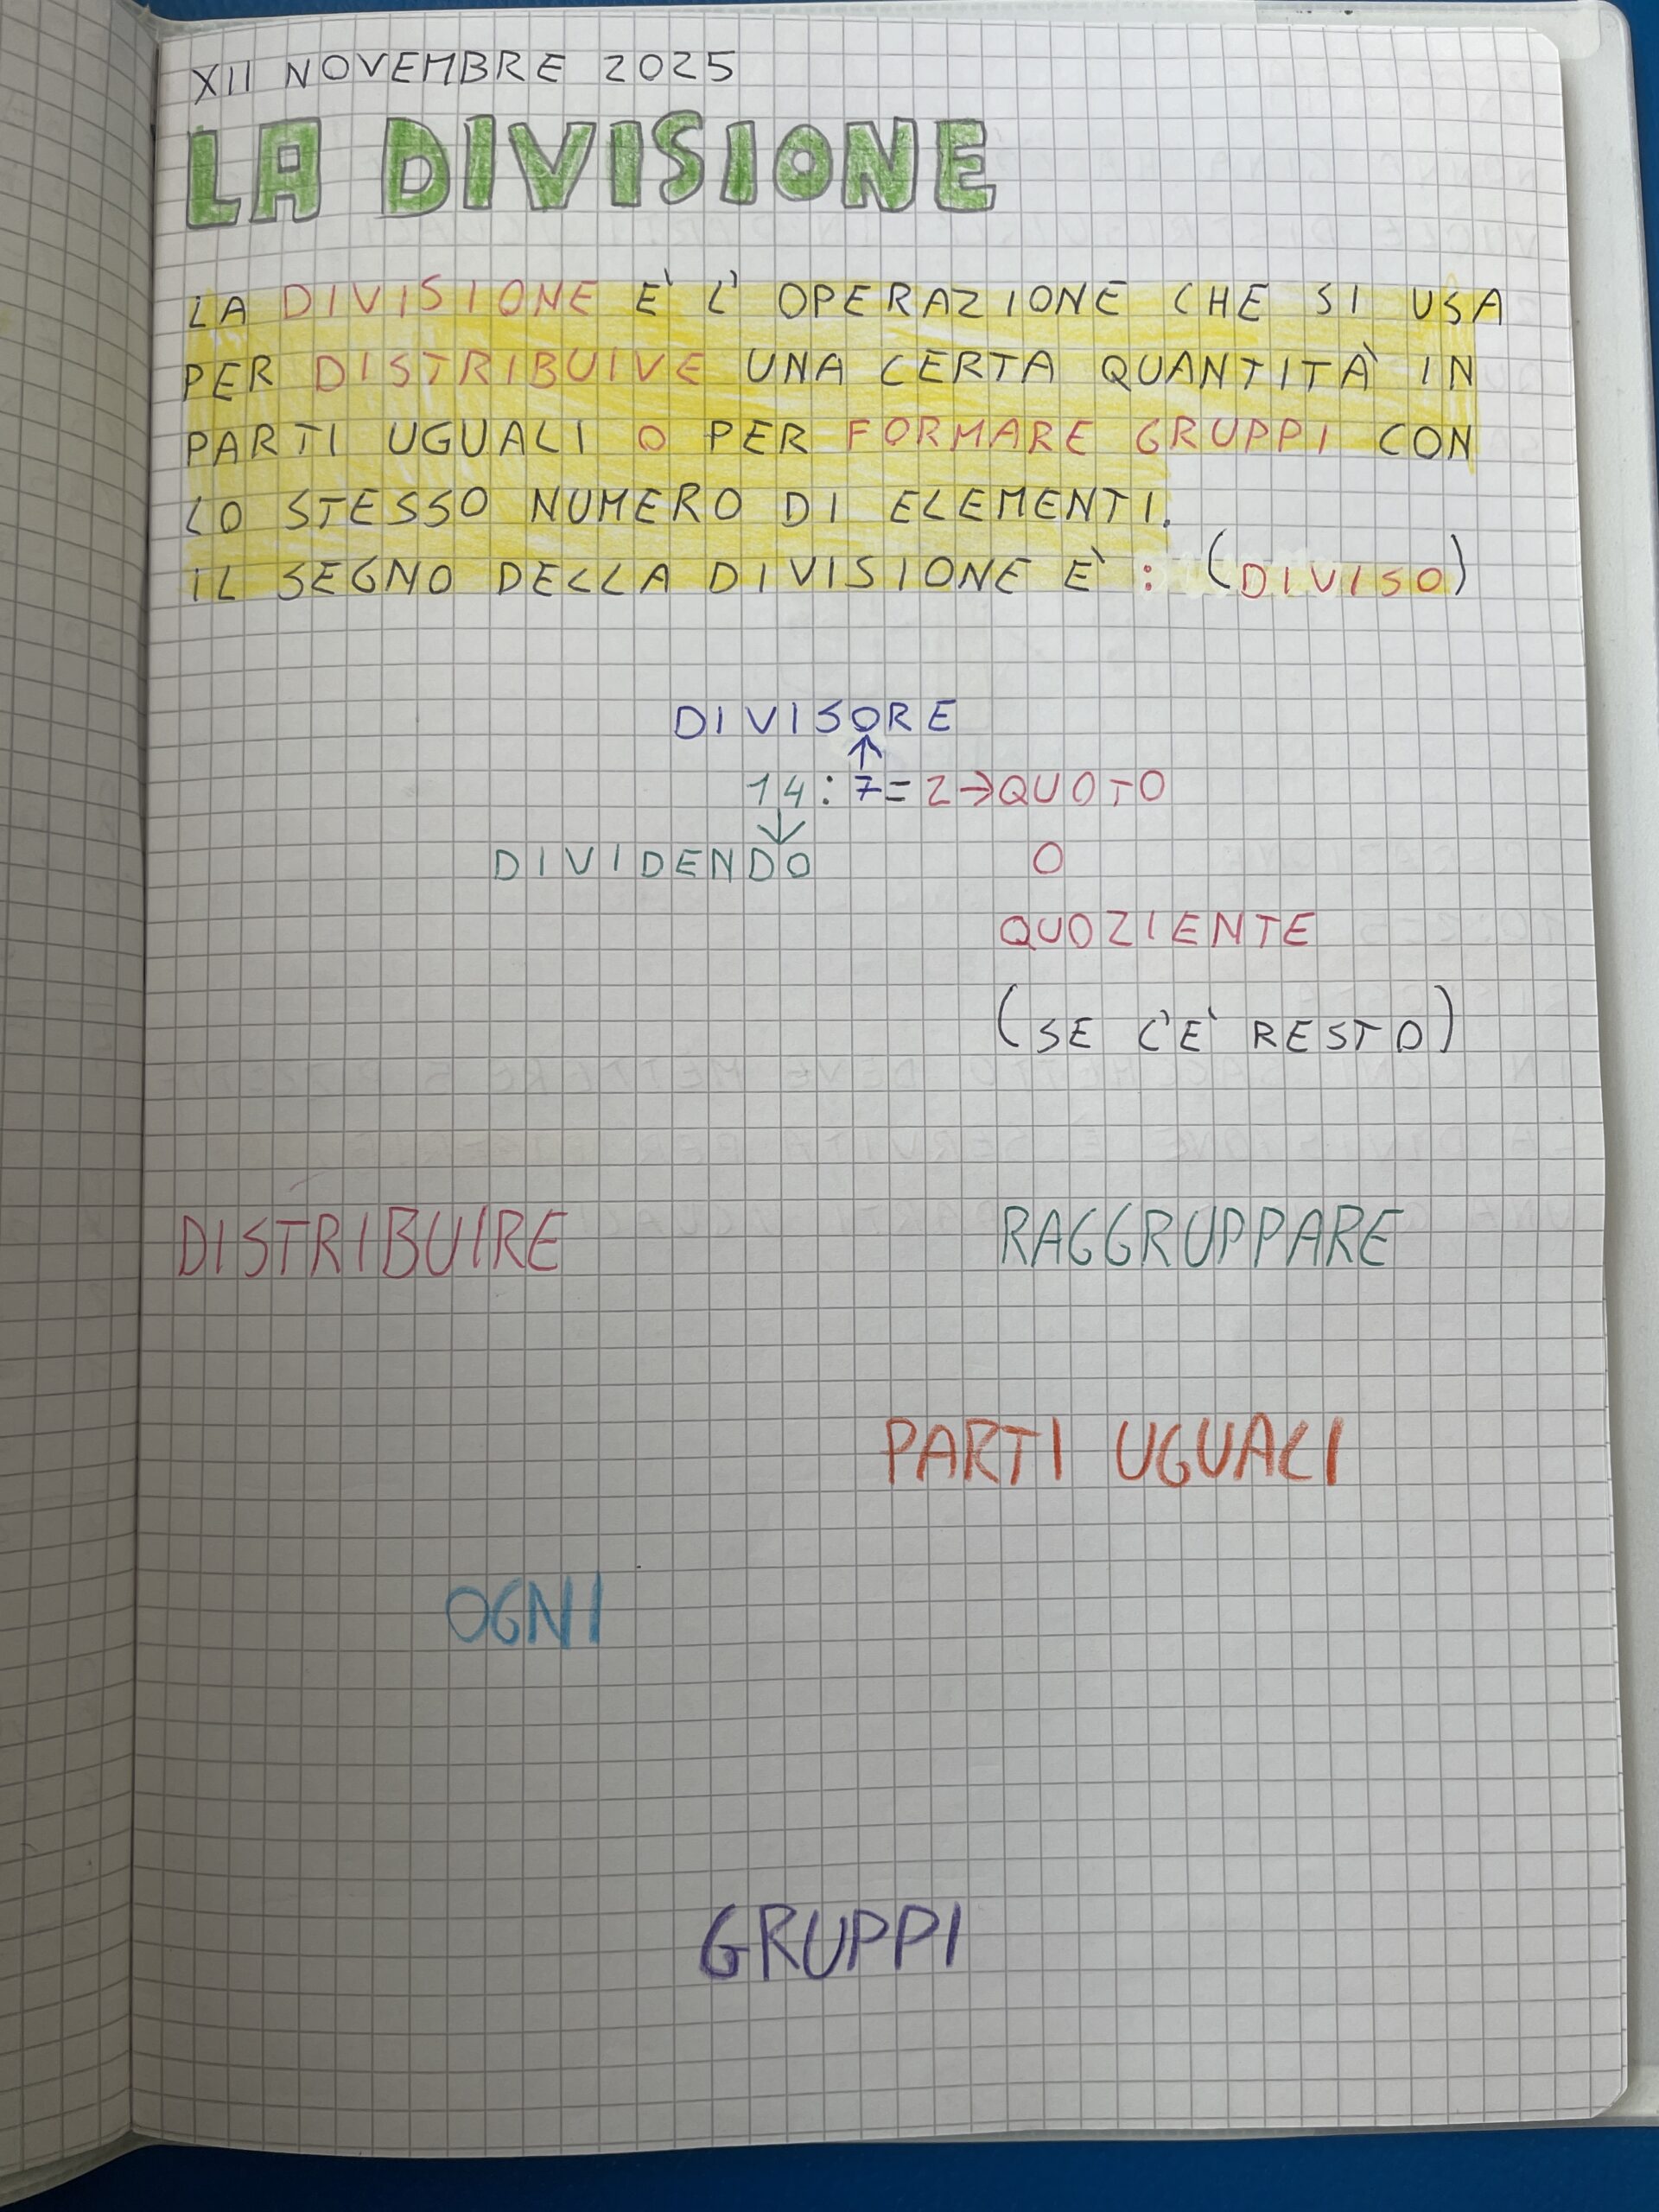 XII NOVEMBRE 2025
LA DIVISIONE
LA DIVISIONE E' L' OPERAZIONE CHE SI USA
PER DISTRIBUIVE UNA CERTA QUANTITÀ IN
PARTI UGUALI O PER FORMARE GRUPPI CON
LO STESSO NUMERO DI ELEMENTI.
IL SEGNO DELLA DIVISIONE È : (DIVISO)
DIVISORE
↑
14:7=2→QUOTO
↓
DIVIDENDO O
QUOZIENTE
(SE C'E' RESTO)
DISTRIBUIRE RAGGRUPPARE
PARTI UGUALI
OGNI
GRUPPI